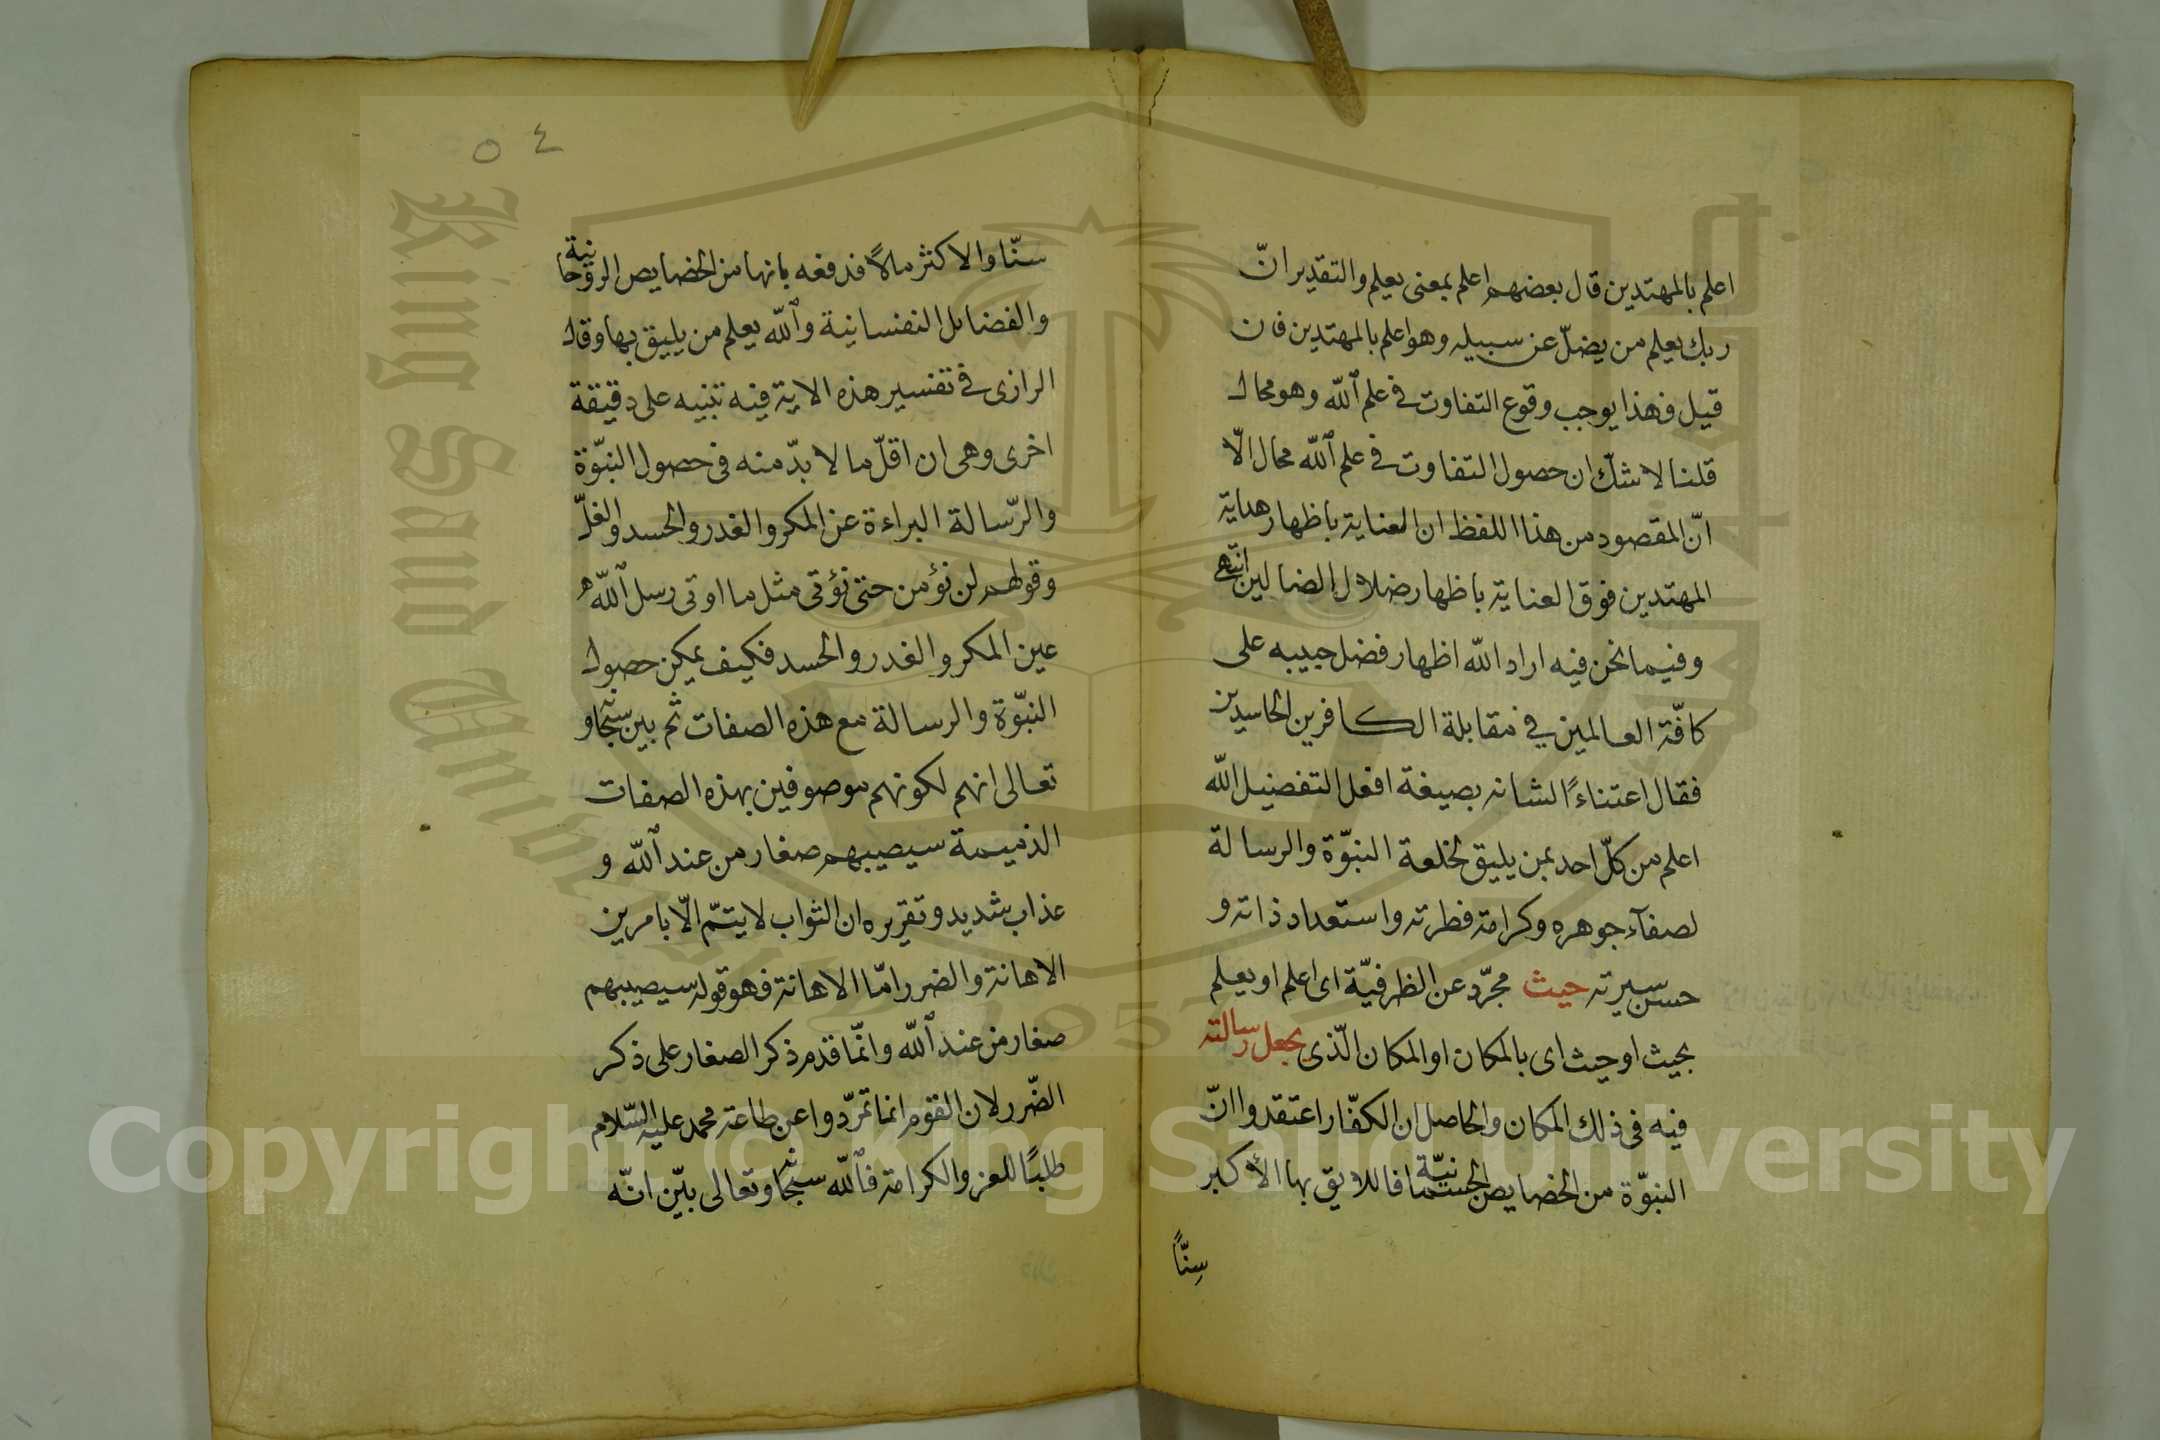 اعلم بالمهتدين قال بعضهم اعلم بمعنى يعلم والتقدير انّ
ربك يعلم من يضلّ عن سبيله وهو اعلم بالمهتدين فان
قيل فهذا يوجب وقوع التفاوت في علم الله وهو محال
قلنا لا شكّ ان حصول التفاوت في علم الله محال الّا
انّ المقصود من هذا اللفظ ان العناية باظهار هداية
المهتدين فوق العناية باظهار ضلال الضالين انتهى
وفيما نحن فيه اراد الله اظهار فضل حبيبه على
كافّة العالمين في مقابلة الكافرين الحاسدين
فقال اعتناءً لشانه بصيغة افعل التفضيل الله
اعلم من كلّ احد بمن يليق لخلعة النبوّة والرسالة
لصفآء جوهره وكرامة فطرته واستعداد ذاته و
حسن سيرته حيث مجرّد عن الظرفيّة اى اعلم او يعلم
بحيث او حيث اى بالمكان او المكان الّذى يجعل رسالته
فيه فى ذلك المكان والحاصل ان الكفّار اعتقدوا انّ
النبوّة من الخصايص الجسمانيّة فاللايق بها الأكبر
سِنّاً
٥٤
سنّا والاكثر مالاً فدفعه بانها من الخصايص الروحانية
والفضايل النفسانية والله يعلم من يليق بها وقال
الرازى في تفسير هذه الاية فيه تنبيه على دقيقة
اخرى وهى ان اقلّ ما لا بدّ منه فى حصول النبوّة
والرّسالة البراءة عن المكر والغدر والحسد والغلّ
وقولهم لن نؤمن حتى نؤتى مثل ما اوتى رسل الله
عين المكر والغدر والحسد فكيف يمكن حصول
النبوّة والرسالة مع هذه الصفات ثم بين سبحانه و
تعالى انهم لكونهم موصوفين بهذه الصفات
الذميمة سيصيبهم صغار من عند الله و
عذاب شديد وتقريره ان الثواب لا يتمّ الّا بامرين
الاهانة والضرر امّا الاهانة فهو قوله سيصيبهم
صغار من عند الله وانّما قدم ذكر الصغار على ذكر
الضّرر لان القوم انما تمرّدوا عن طاعة محمد عليه السّلام
طلبًا للعز والكرامة فالله سبحانه وتعالى بيّن انّه
King Saud University
1957
Copyright © King Saud University